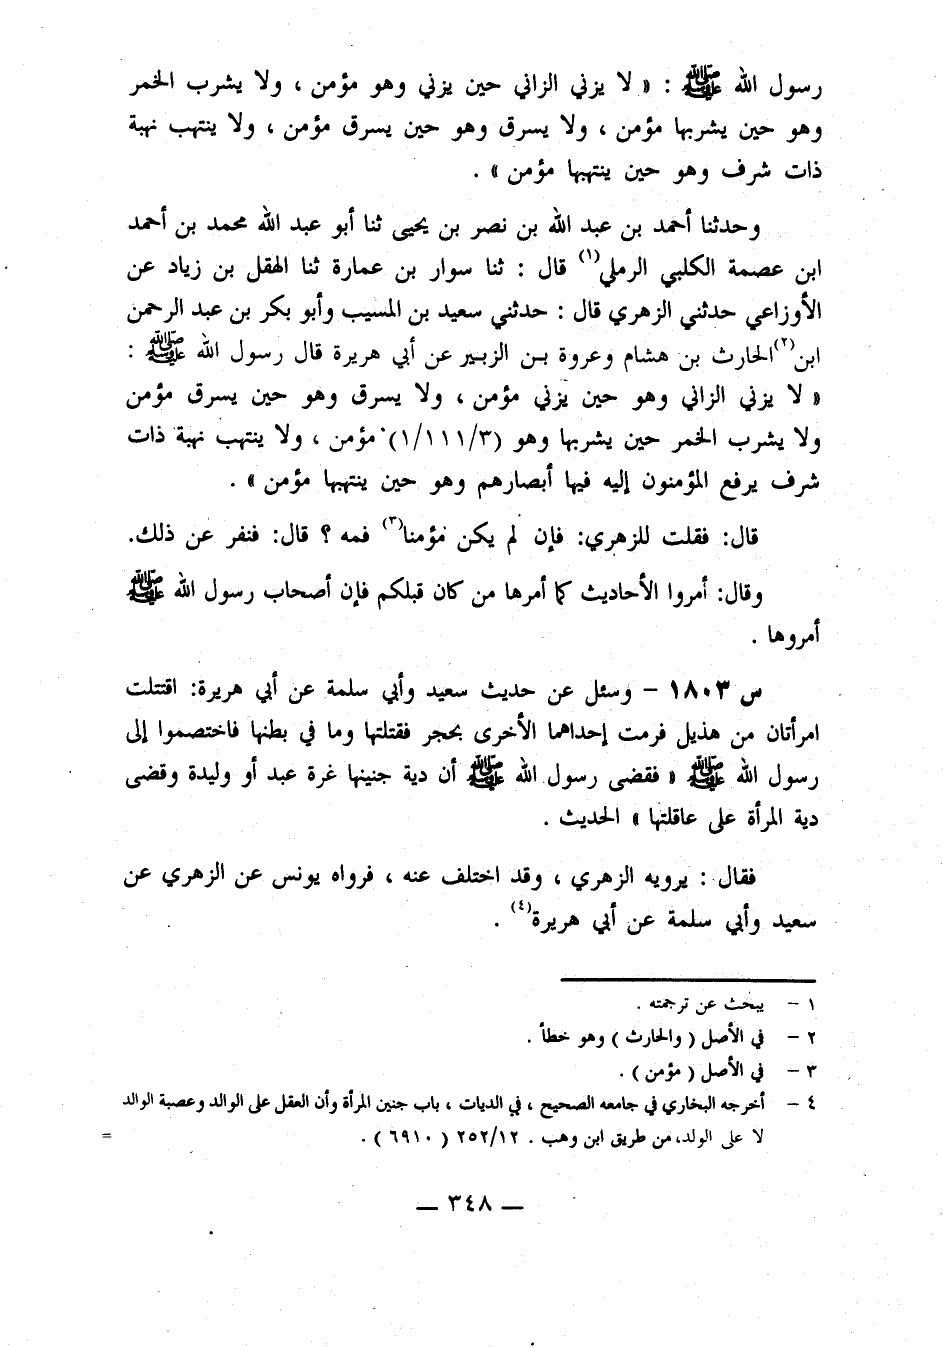 رسول الله ﷺ : « لا يزني الزاني حين يزني وهو مؤمن ، ولا يشرب الخمر
وهو حين يشربها مؤمن ، ولا يسرق وهو حين يسرق مؤمن ، ولا ينتهب نهبة
ذات شرف وهو حين ينتهبها مؤمن » .
وحدثنا أحمد بن عبد الله بن نصر بن يحيى ثنا أبو عبد الله محمد بن أحمد
ابن عصمة الكلبي الرملي(١) قال : ثنا سوار بن عمارة ثنا الهقل بن زياد عن
الأوزاعي حدثني الزهري قال : حدثني سعيد بن المسيب وأبو بكر بن عبد الرحمن
ابن(٢) الحارث بن هشام وعروة بن الزبير عن أبي هريرة قال رسول الله ﷺ :
« لا يزني الزاني وهو حين يزني مؤمن ، ولا يسرق وهو حين يسرق مؤمن
ولا يشرب الخمر حين يشربها وهو (١/١١١/٣) مؤمن ، ولا ينتهب نهبة ذات
شرف يرفع المؤمنون إليه فيها أبصارهم وهو حين ينتهبها مؤمن » .
قال: فقلت للزهري: فإن لم يكن مؤمنا(٣) فمه ؟ قال: فنفر عن ذلك.
وقال: أمروا الأحاديث كما أمرها من كان قبلكم فإن أصحاب رسول الله ﷺ
أمروها .
س ١٨٠٣ – وسئل عن حديث سعيد وأبي سلمة عن أبي هريرة: اقتتلت
امرأتان من هذيل فرمت إحداهما الأخرى بحجر فقتلتها وما في بطنها فاختصموا إلى
رسول الله ﷺ « فقضى رسول الله ﷺ أن دية جنينها غرة عبد أو وليدة وقضى
دية المرأة على عاقلتها » الحديث .
فقال : يرويه الزهري ، وقد اختلف عنه ، فرواه يونس عن الزهري عن
سعيد وأبي سلمة عن أبي هريرة(٤) .
١ – يبحث عن ترجمته .
٢ – في الأصل ( والحارث ) وهو خطأ .
٣ – في الأصل ( مؤمن ) .
٤ – أخرجه البخاري في جامعه الصحيح ، في الديات ، باب جنين المرأة وأن العقل على الوالد وعصبة الوالد
لا على الولد، من طريق ابن وهب . ٢٥٢/١٢ ( ٦٩١٠ ) . =
— ٣٤٨ —